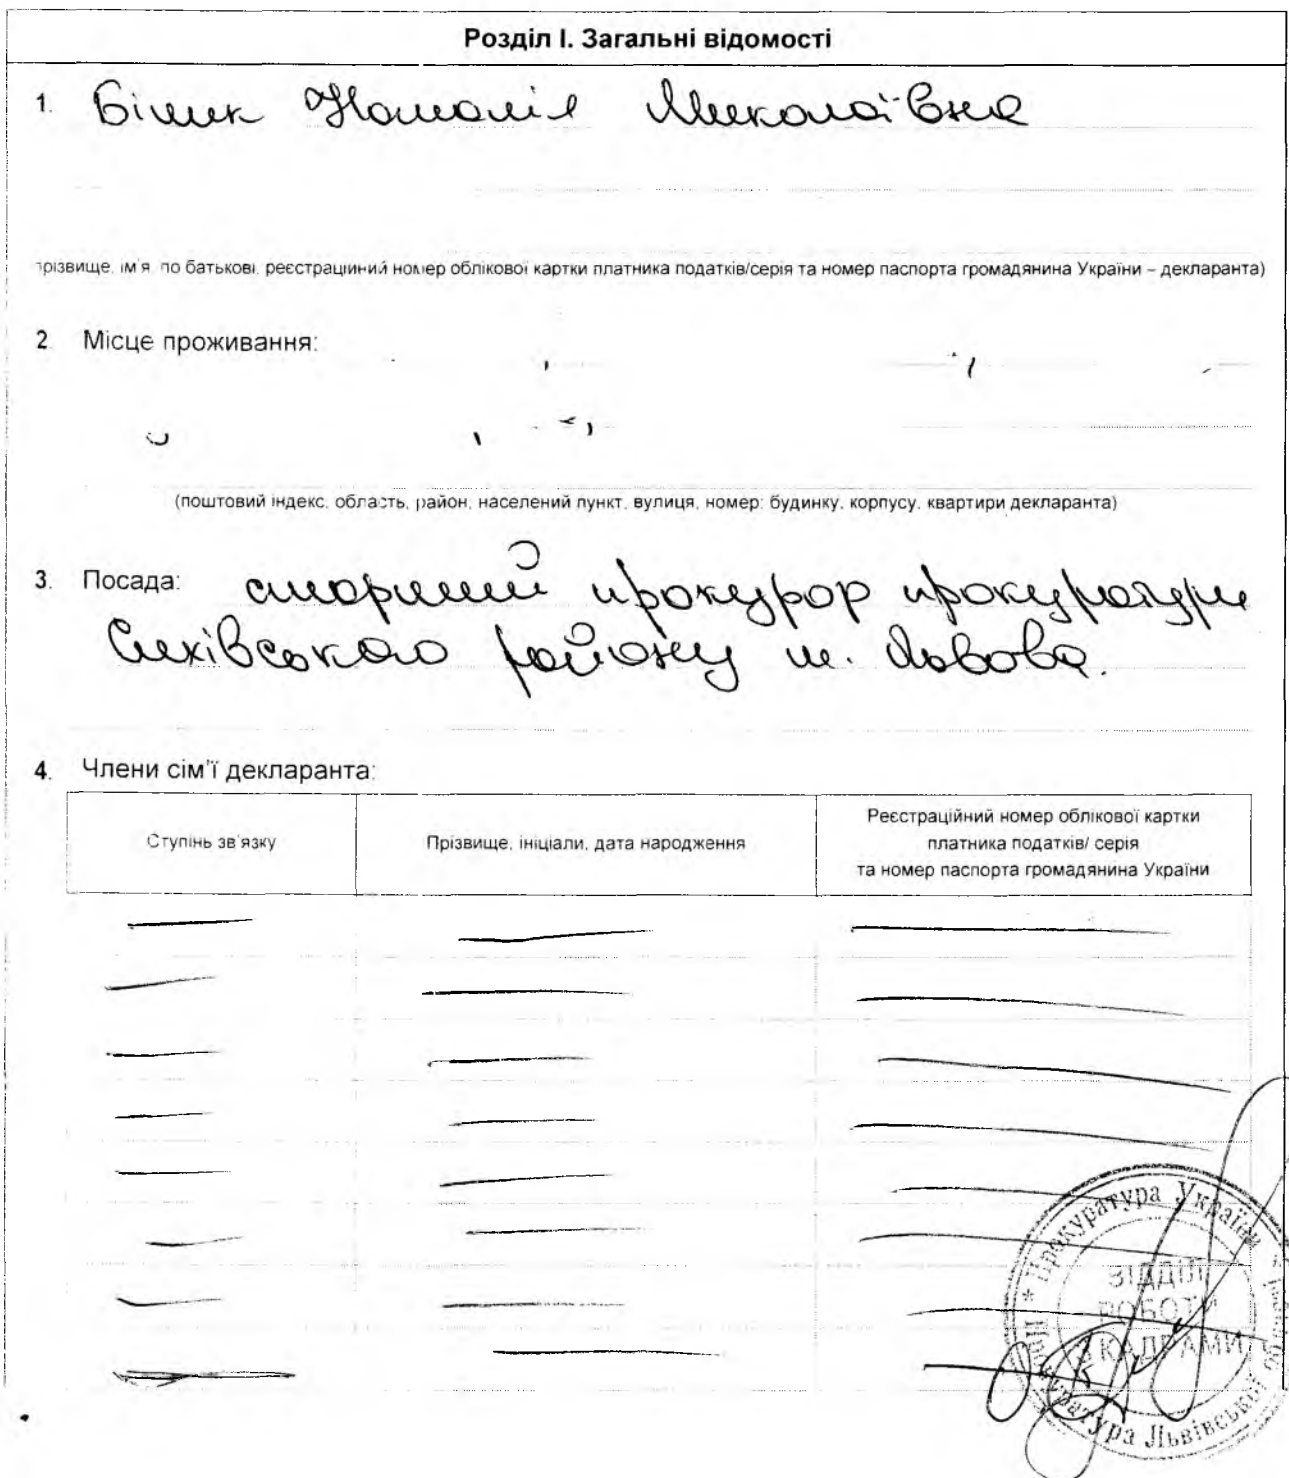 Розділ I. Загальні відомості
1. Білик Наталія Миколаївна
прізвище, ім'я, по батькові, реєстраційний номер облікової картки платника податків/серія та номер паспорта громадянина України – декларанта)
2. Місце проживання:
(поштовий індекс, область, район, населений пункт, вулиця, номер: будинку, корпусу, квартири декларанта)
3. Посада: старший прокурор прокуратури
Сихівського району м. Львова.
4. Члени сім'ї декларанта:
Ступінь зв'язку
Прізвище, ініціали, дата народження
Реєстраційний номер облікової картки
платника податків/ серія
та номер паспорта громадянина України
Прокуратура України
ВІДДІЛ
РОБОТИ
З КАДРАМИ
Прокуратура Львівської